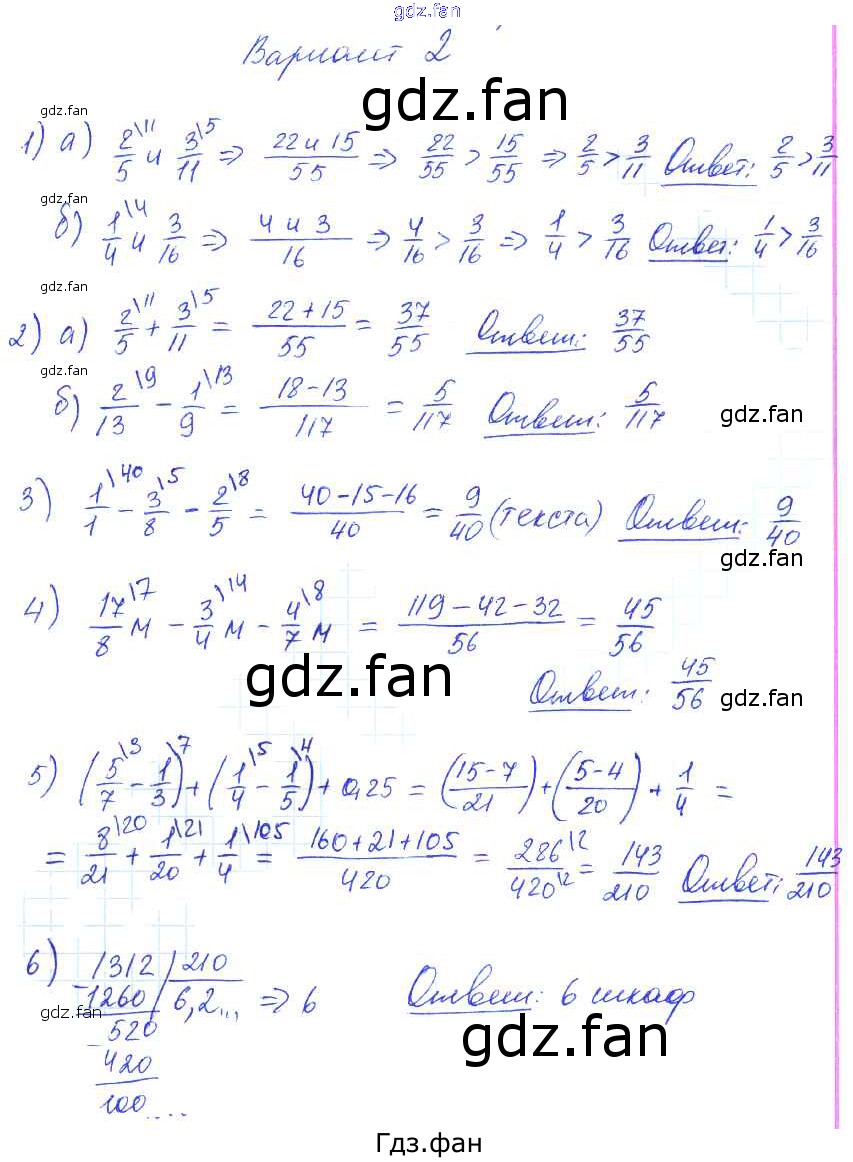 gdz.fan
Вариант 2
gdz.fan
gdz.fan
1) а) 2/5 \11 и 3/11 \5 => 22 и 15/55 => 22/55 > 15/55 => 2/5 > 3/11 Ответ: 2/5 > 3/11
gdz.fan
б) 1/4 \4 и 3/16 => 4 и 3/16 => 4/16 > 3/16 => 1/4 > 3/16 Ответ: 1/4 > 3/16
gdz.fan
2) а) 2/5 \11 + 3/11 \5 = 22+15/55 = 37/55 Ответ: 37/55
gdz.fan
б) 2/13 \9 - 1/9 \13 = 18-13/117 = 5/117 Ответ: 5/117
gdz.fan
3) 1/1 \40 - 3/8 \5 - 2/5 \8 = 40-15-16/40 = 9/40 (текста) Ответ: 9/40
gdz.fan
4) 17/8 \7 м - 3/4 \14 м - 4/7 \8 м = 119-42-32/56 = 45/56
gdz.fan
Ответ: 45/56
gdz.fan
5) (5/7 \3 - 1/3 \7) + (1/4 \5 - 1/5 \4) + 0,25 = (15-7/21) + (5-4/20) + 1/4 =
= 8/21 \20 + 1/20 \21 + 1/4 \105 = 160+21+105/420 = 286 \2/420 \2 = 143/210 Ответ: 143/210
6) 1312 | 210
-1260 | 6,2... => 6 Ответ: 6 шкаф
gdz.fan
520
gdz.fan
-420
100 ...
Гдз.фан